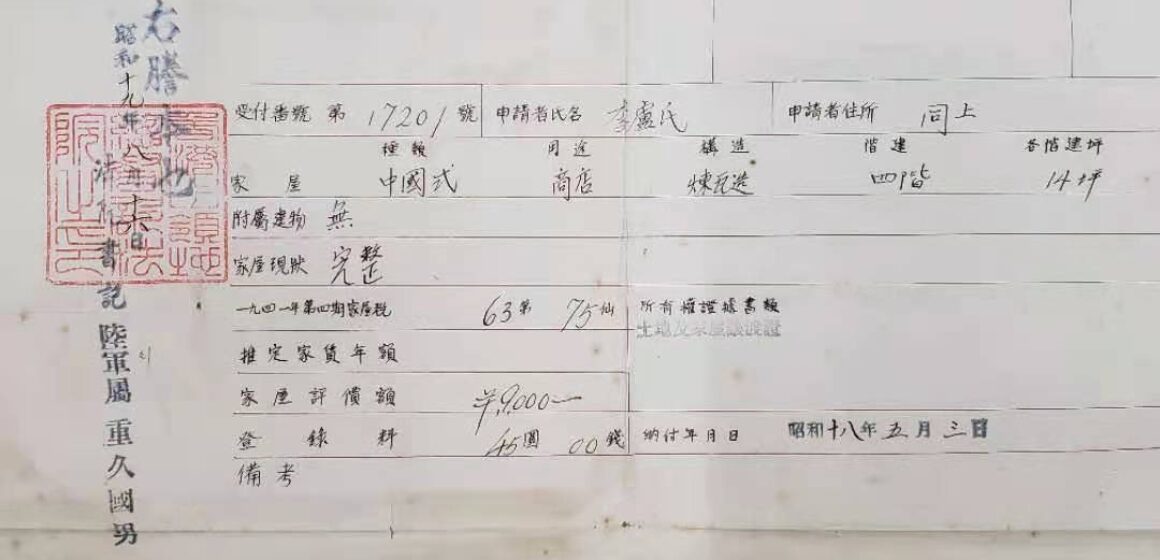 右謄本也
昭和十九年八月十六日
法院書記 陸軍属 重久國男
受付番號 第 17201 號 申請者氏名 李盧氏 申請者住所 同上
種類 用途 構造 階建 各階建坪
家屋 中國式 商店 煉瓦造 四階 14坪
附屬建物 無
家屋現狀 完整
一九四一年第四期家屋税 63 弗 75 仙 所有權證據書類
土地及家屋譲渡證
推定家賃年額
家屋評價額 ¥9,000—
登錄料 45圓 00錢 納付年月日 昭和十八年五月三日
備考